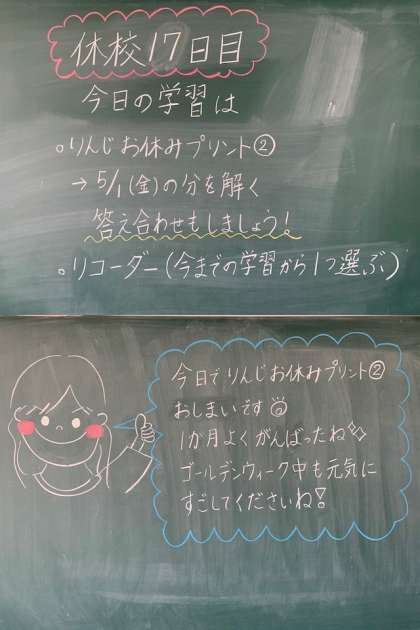 休校17日目
今日の学習は
○りんじお休みプリント②
→5/1(金)の分を解く
答え合わせもしましょう!
○リコーダー(今までの学習から1つ選ぶ)
今日でりんじお休みプリント②
おしまいです
1か月よくがんばったね
ゴールデンウィーク中も元気に
すごしてくださいね!